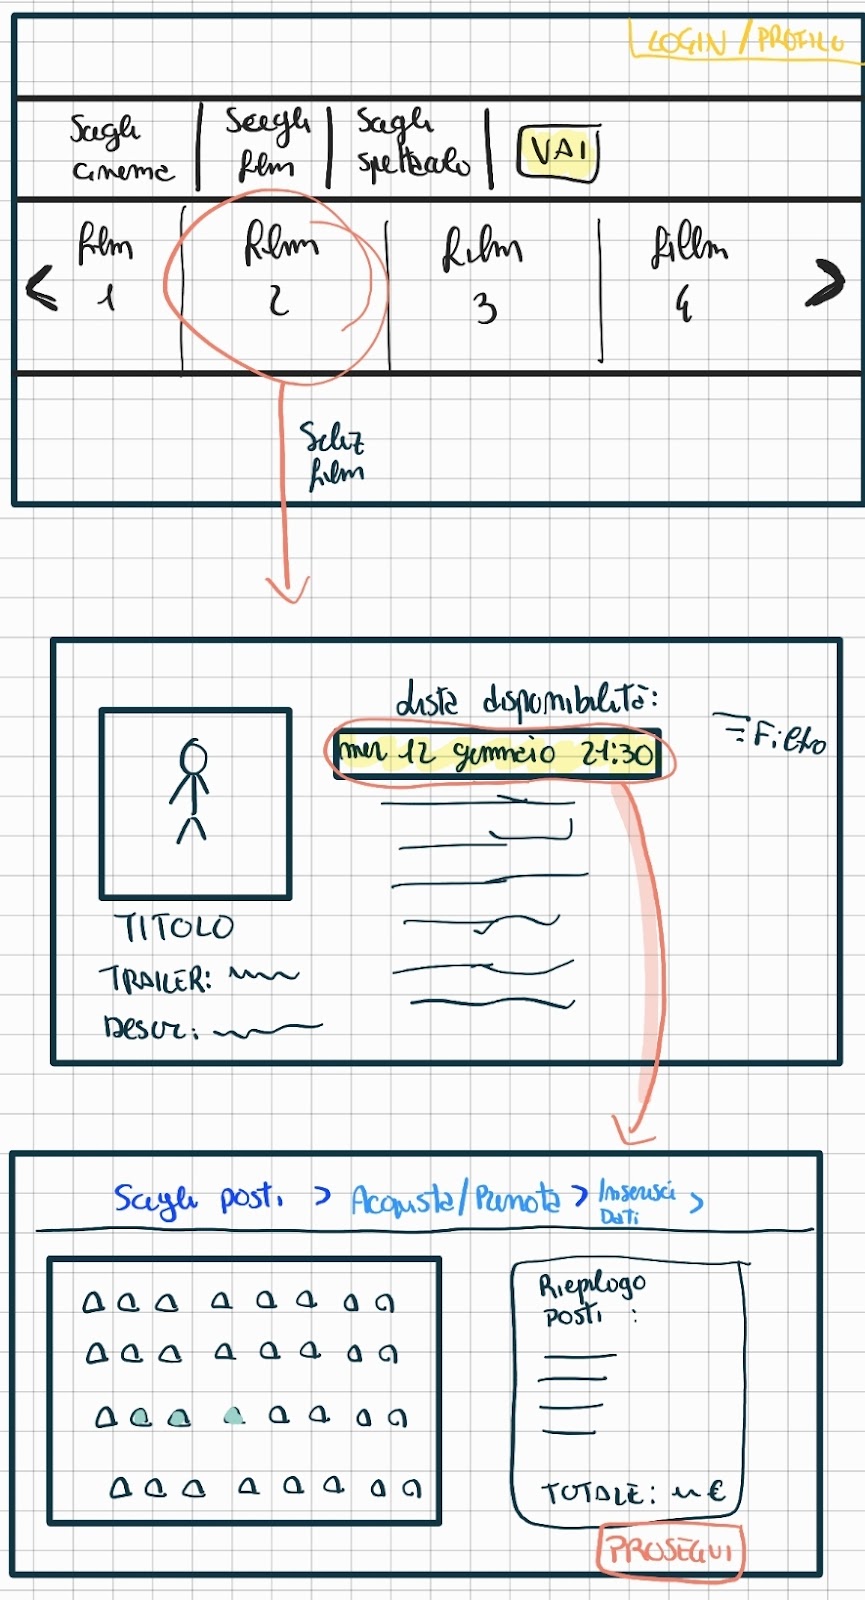 LOGIN / PROFILO
Scegli
cinema
Scegli
film
Scegli
spettacolo
VAI
<
Film
1
Film
2
Film
3
Film
4
>
Selez
film
Lista disponibilità:
mer 12 gennaio 21:30
Filtro
TITOLO
TRAILER:
DESCR:
Scegli posti > Acquista/Prenota > Inserisci
Dati >
Riepilogo
posti :
TOTALE: €
PROSEGUI